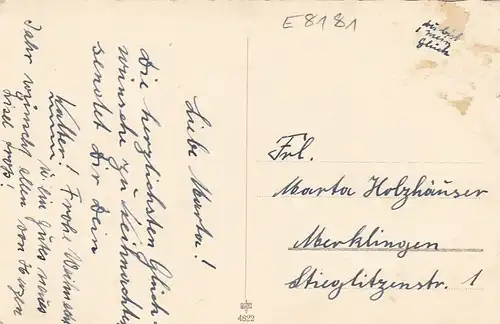 E8181
du bist
mein
Glück
Liebe Marta!
Die herzlichsten Glück-
wünsche zu Weihnachten
sendet Dir Dein
Walter!
Frohe Weihnacht
u. ein gutes neues
Jahr wünscht allen von Herzen
Frl.
Marta Holzhäuser
Merklingen
Stieglitzenstr. 1
4822